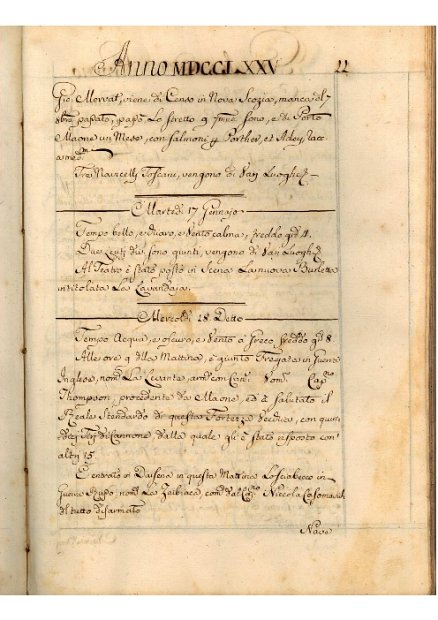 Anno MDCCLXXV 22
Gio. Morvat, viene di Censo in Nova Scozia, manca del 7
8bre passato, passò lo stretto 9 sono, e di Porto
Maone un Mese, con Salmoni Porther, et Adey,

Tre Navicelli Toscani, vengono di Van Luoghi
Martedì 17 Gennajo
Tempo bello, e duaro, e Vento calma, freddo gdi 4.
Due Leuti dui sono giunti, vengono di Van Luoghi
Al Teatro è stato posto in Scena La nuova Burletta
intitolata La Lavandaja.
Mercoldì 18 Detto
Tempo Acqua, e oscuro, e Vento a Greco, freddo gdi 8
Alle ore 9 della Mattina, è giunto Fregata in Guerra
Inglese, nomta La Levante, armta con Cap.
Thompson, procedente da Maone, ed à salutato il
Reale Stendardo di questa Fortezza Vecchia, con
Tiri di Cannone dalla quale gli è stato risposto con
altri 15.
È entrato in Darsena in questa Mattina Lo Sciabecco in
Guerra nomto La Zeibiaca, Niccola
del tutto disarmato
Nave